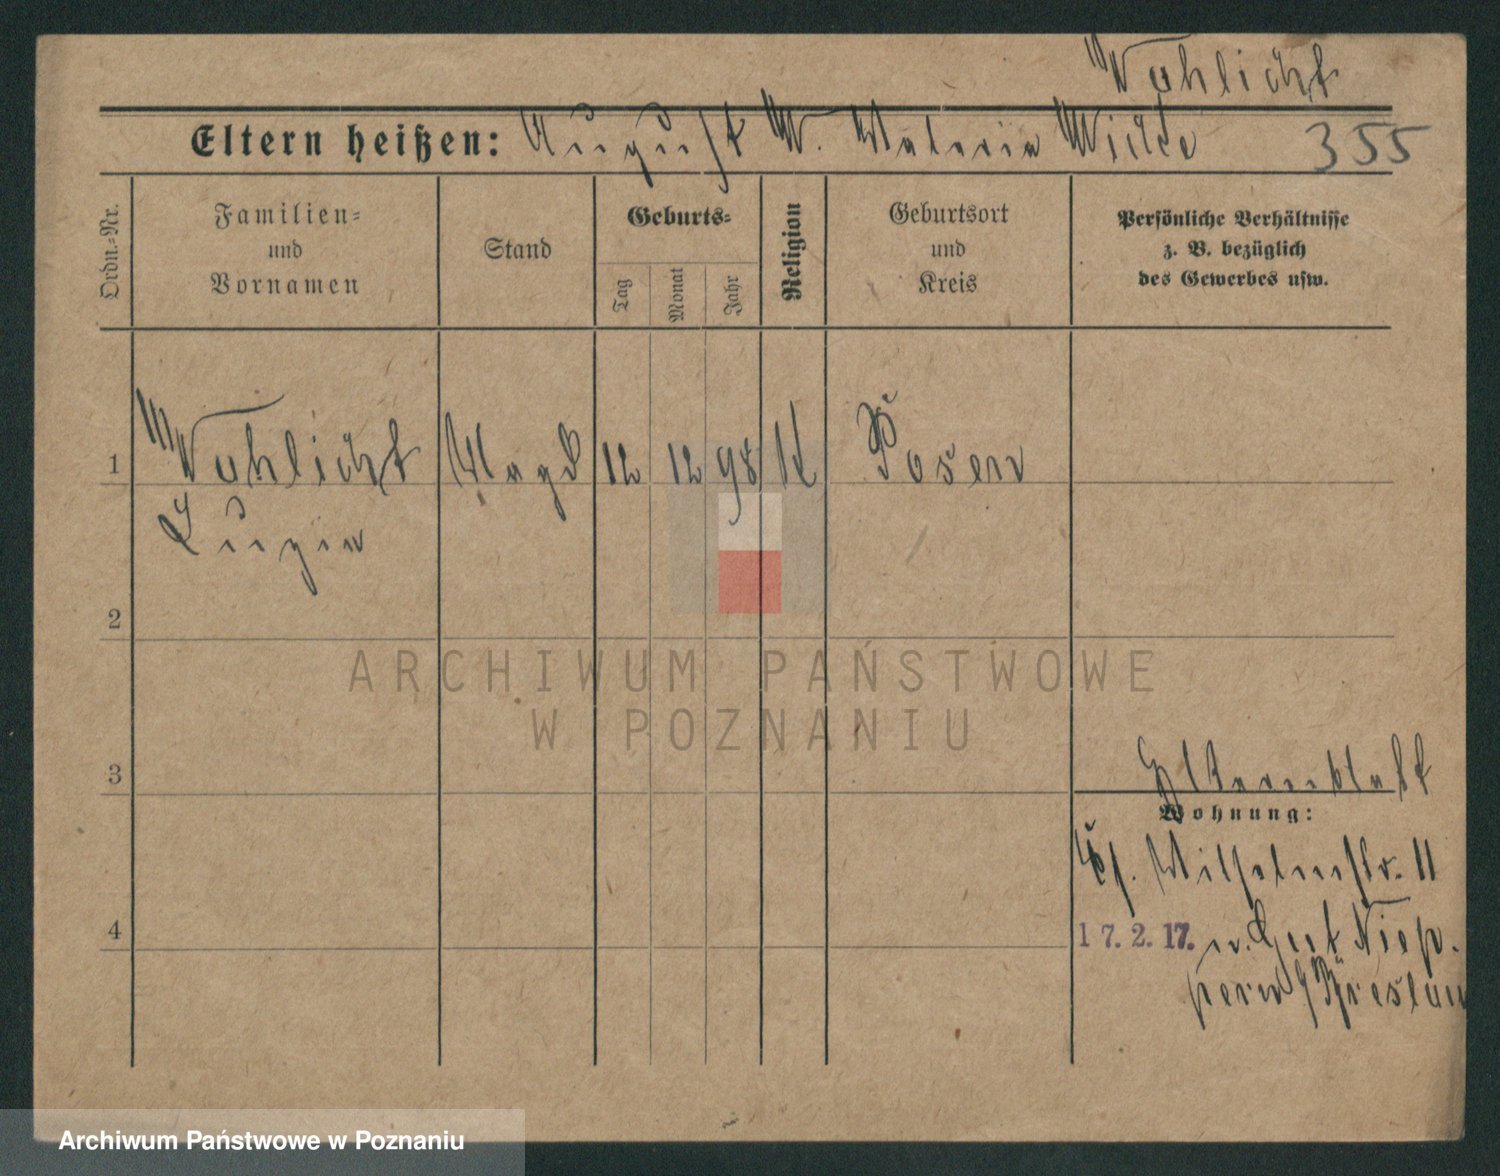 Wohlicht
Eltern heißen: August W. Valeria Wilde
355
Ordn.=Nr.
Familien=
und
Vornamen
Stand
Geburts=
Tag
Monat
Jahr
Religion
Geburtsort
und
Kreis
Persönliche Verhältnisse
z. B. bezüglich
des Gewerbes usw.
1
Wohlicht
Magd
12
12
98
K
Posen
2
ARCHIWUM PAŃSTWOWE
W POZNANIU
3
Elternblatt
Wohnung:
Wilhelmstr. 11
4
17. 2. 17. n. Gut Niep.
pern / Breslau
Archiwum Państwowe w Poznaniu